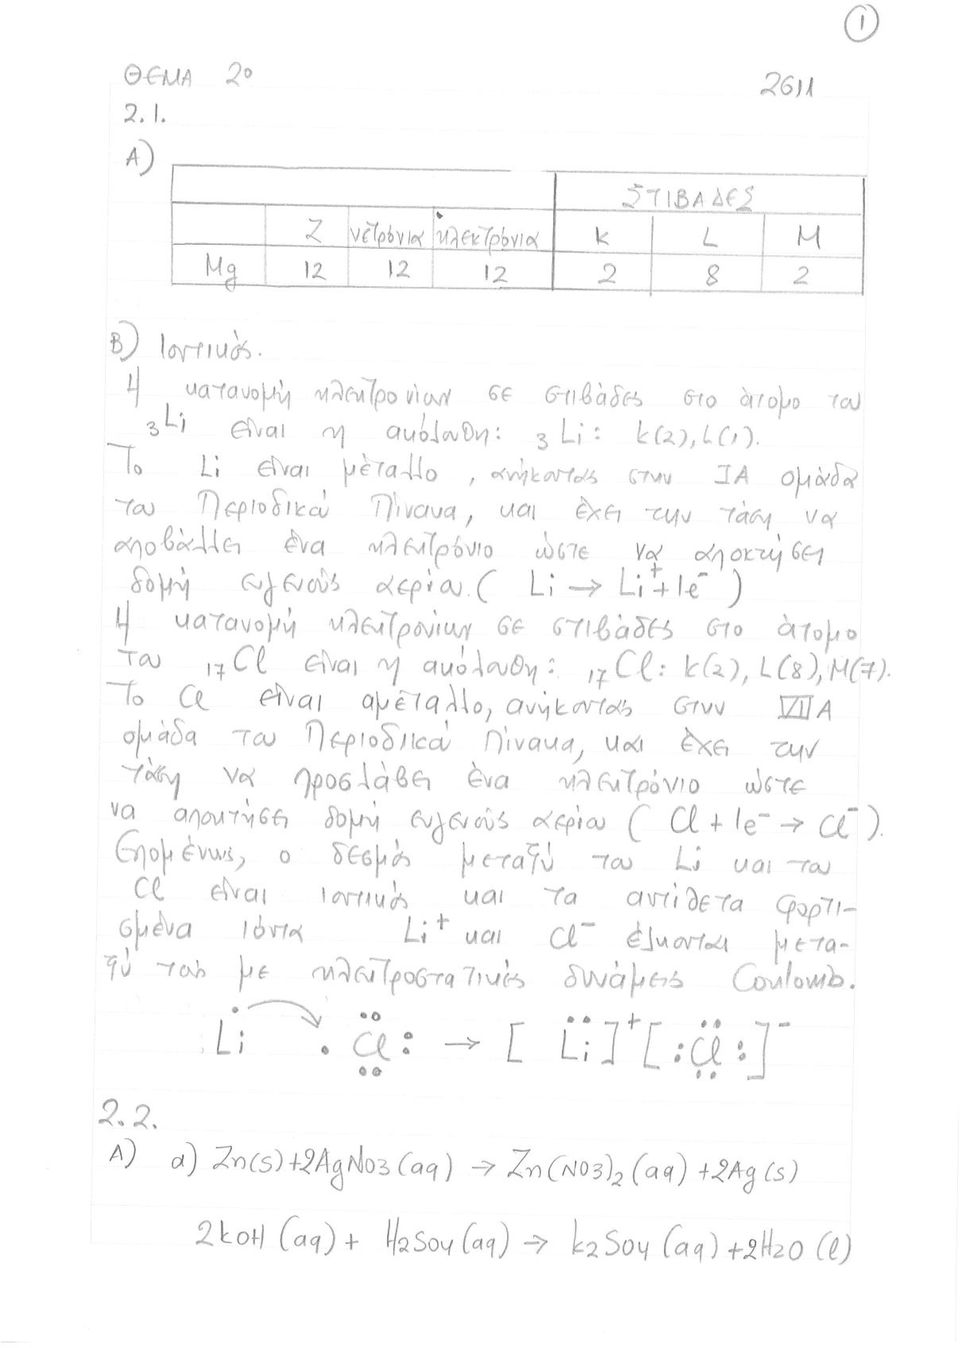 1
ΘΕΜΑ 2ο 2611
2.1.
Α)
ΣΤΙΒΑΔΕΣ
Z νετρόνια ηλεκτρόνια K L M
Mg 12 12 12 2 8 2
Β) Ιοντικός.
Η κατανομή ηλεκτρονίων σε στιβάδες στο άτομο του
₃Li είναι η ακόλουθη: ₃Li: K(2), L(1).
Το Li είναι μέταλλο, ανήκοντας στην IA ομάδα
του Περιοδικού Πίνακα, και έχει την τάση να
αποβάλλει ένα ηλεκτρόνιο ώστε να αποκτήσει
δομή ευγενούς αερίου. ( Li → Li⁺ + 1e⁻ )
Η κατανομή ηλεκτρονίων σε στιβάδες στο άτομο
του ₁₇Cl είναι η ακόλουθη: ₁₇Cl: K(2), L(8), M(7).
Το Cl είναι αμέταλλο, ανήκοντας στην VIIA
ομάδα του Περιοδικού Πίνακα, και έχει την
τάση να προσλάβει ένα ηλεκτρόνιο ώστε
να αποκτήσει δομή ευγενούς αερίου ( Cl + 1e⁻ → Cl⁻ ).
Επομένως, ο δεσμός μεταξύ του Li και του
Cl είναι ιοντικός και τα αντίθετα φορτι-
σμένα ιόντα Li⁺ και Cl⁻ έλκονται μετα-
ξύ τους με ηλεκτροστατικές δυνάμεις Coulomb.
Li . Cl : → [ Li ]⁺ [ : Cl : ]⁻
2.2.
Α) α) Zn(s) + 2AgNO3 (aq) → Zn(NO3)₂ (aq) + 2Ag (s)
2KOH (aq) + H2SO4 (aq) → K2SO4 (aq) + 2H2O (l)